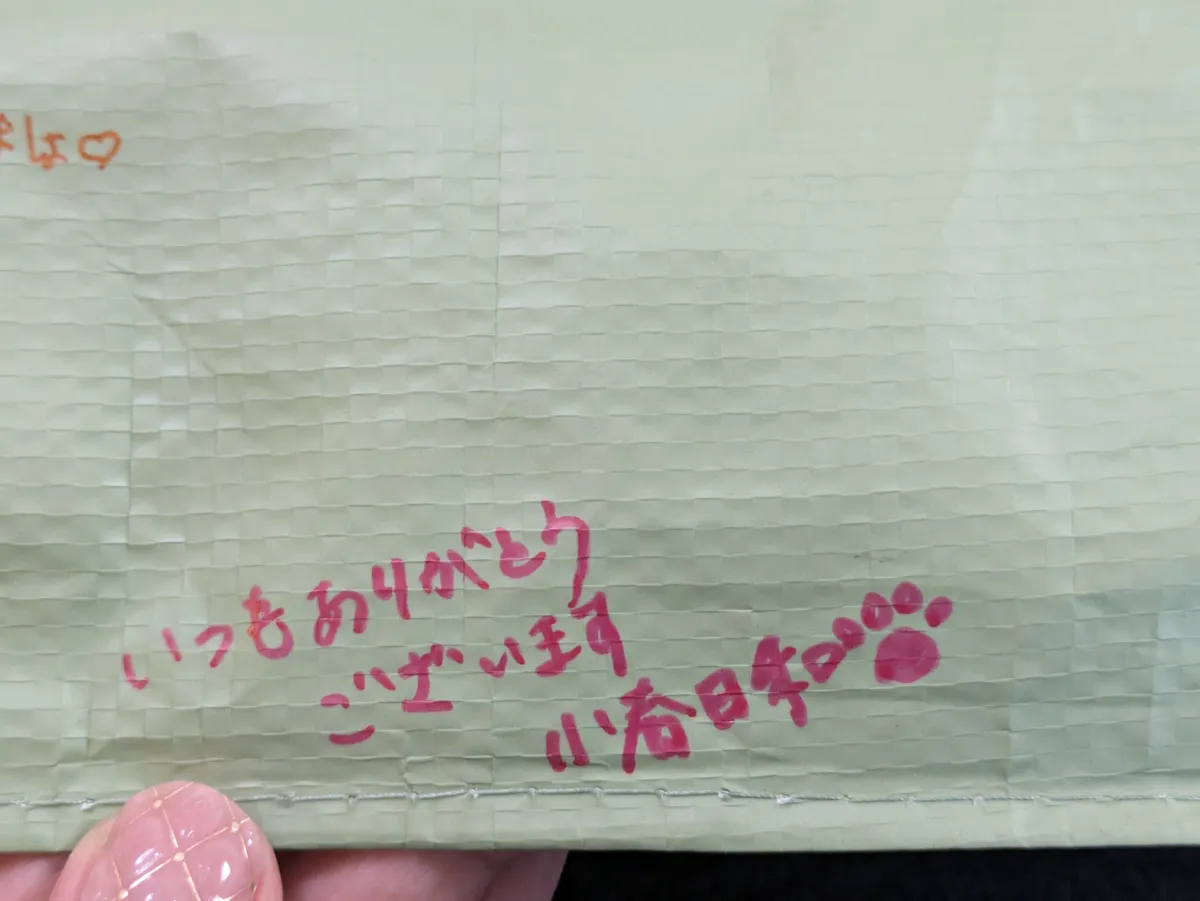 しょ♡
いつもありがとう
ございます
小春日和